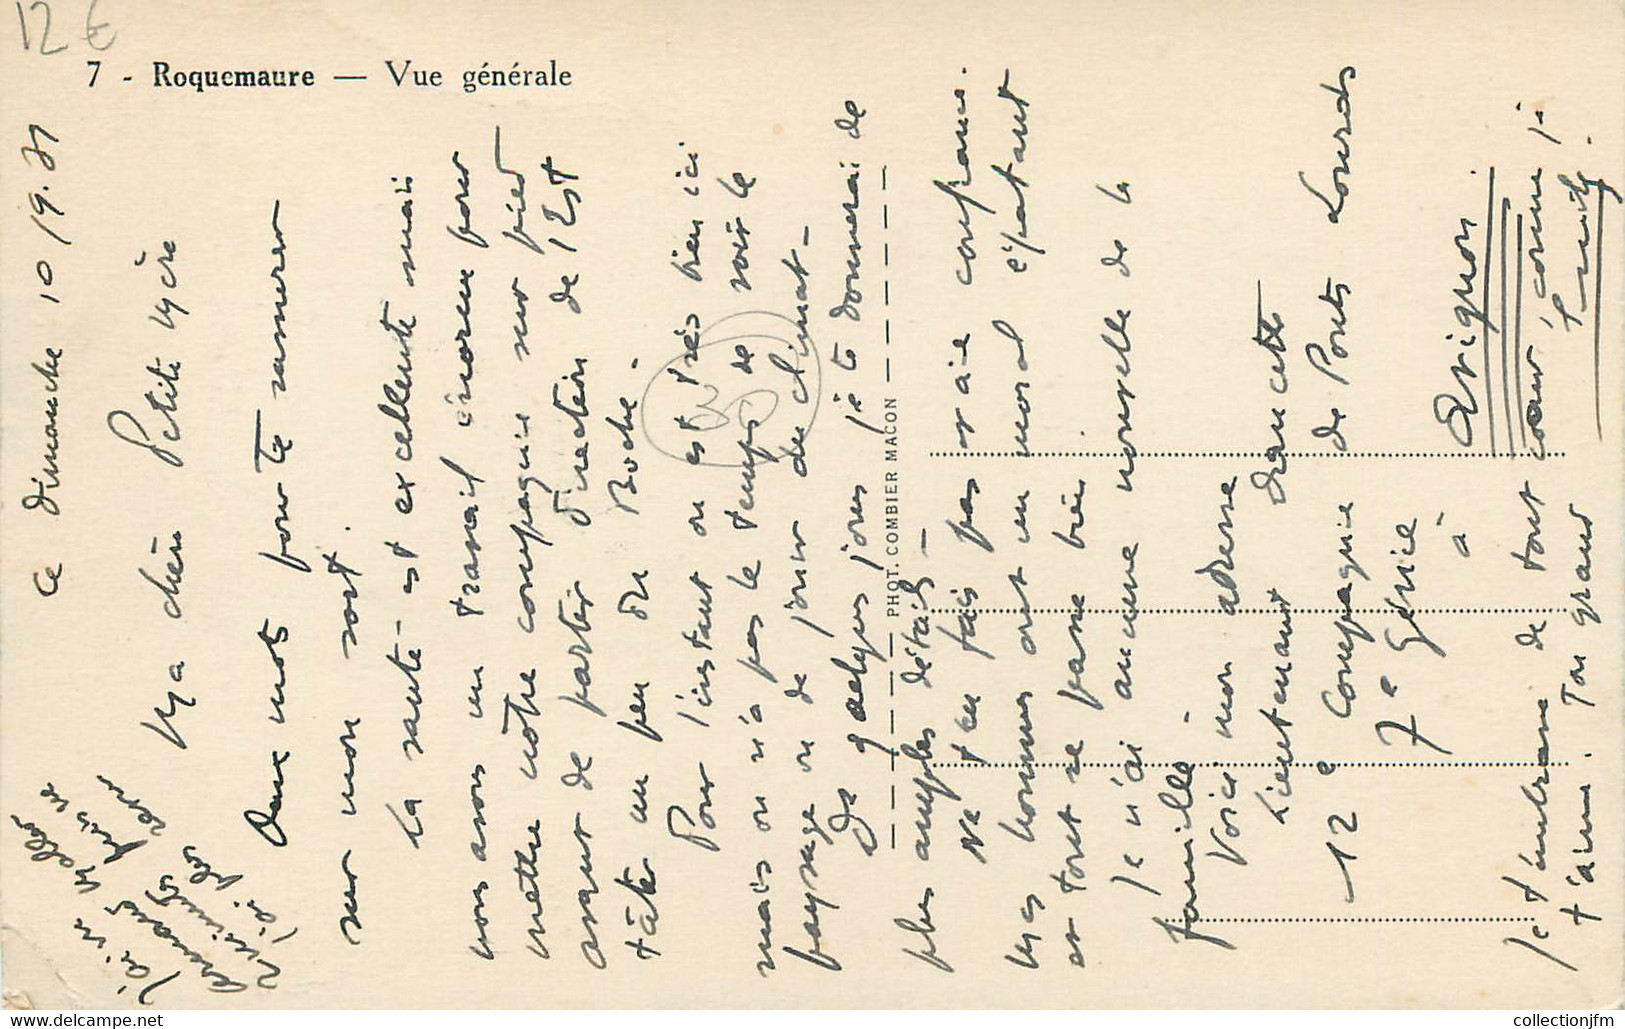 12 €
7 - Roquemaure — Vue générale
Ce Dimanche 10 19.31
Ma chère Petite Mère
Deux mots pour te rassurer
sur mon sort.
La santé est excellente mais
nous avons un travail énorme pour
mettre nôtre compagnie sur pied
avant de partir direction de l'Est
tâter un peu du Boche -
Pour l'instant on est très bien ici
mais on n'a pas le temps de voir le
paysage ou de jouir du climat -
De quelques jours je te donnerai de
plus amples détails -
Ne t'en fais pas, aie confiance.
Mes hommes ont un moral épatant
et tout se passe bien
Je n'ai aucune nouvelle de la
famille -
Voici mon adresse
Lieutenant
12e Compagnie de Ponts Lourds
7e Génie
à
Avignon
Je t'embrasse de tout coeur, comme je
t'aime. Ton grand
PHOT. COMBIER MACON
collectionjfm
www.delcampe.net